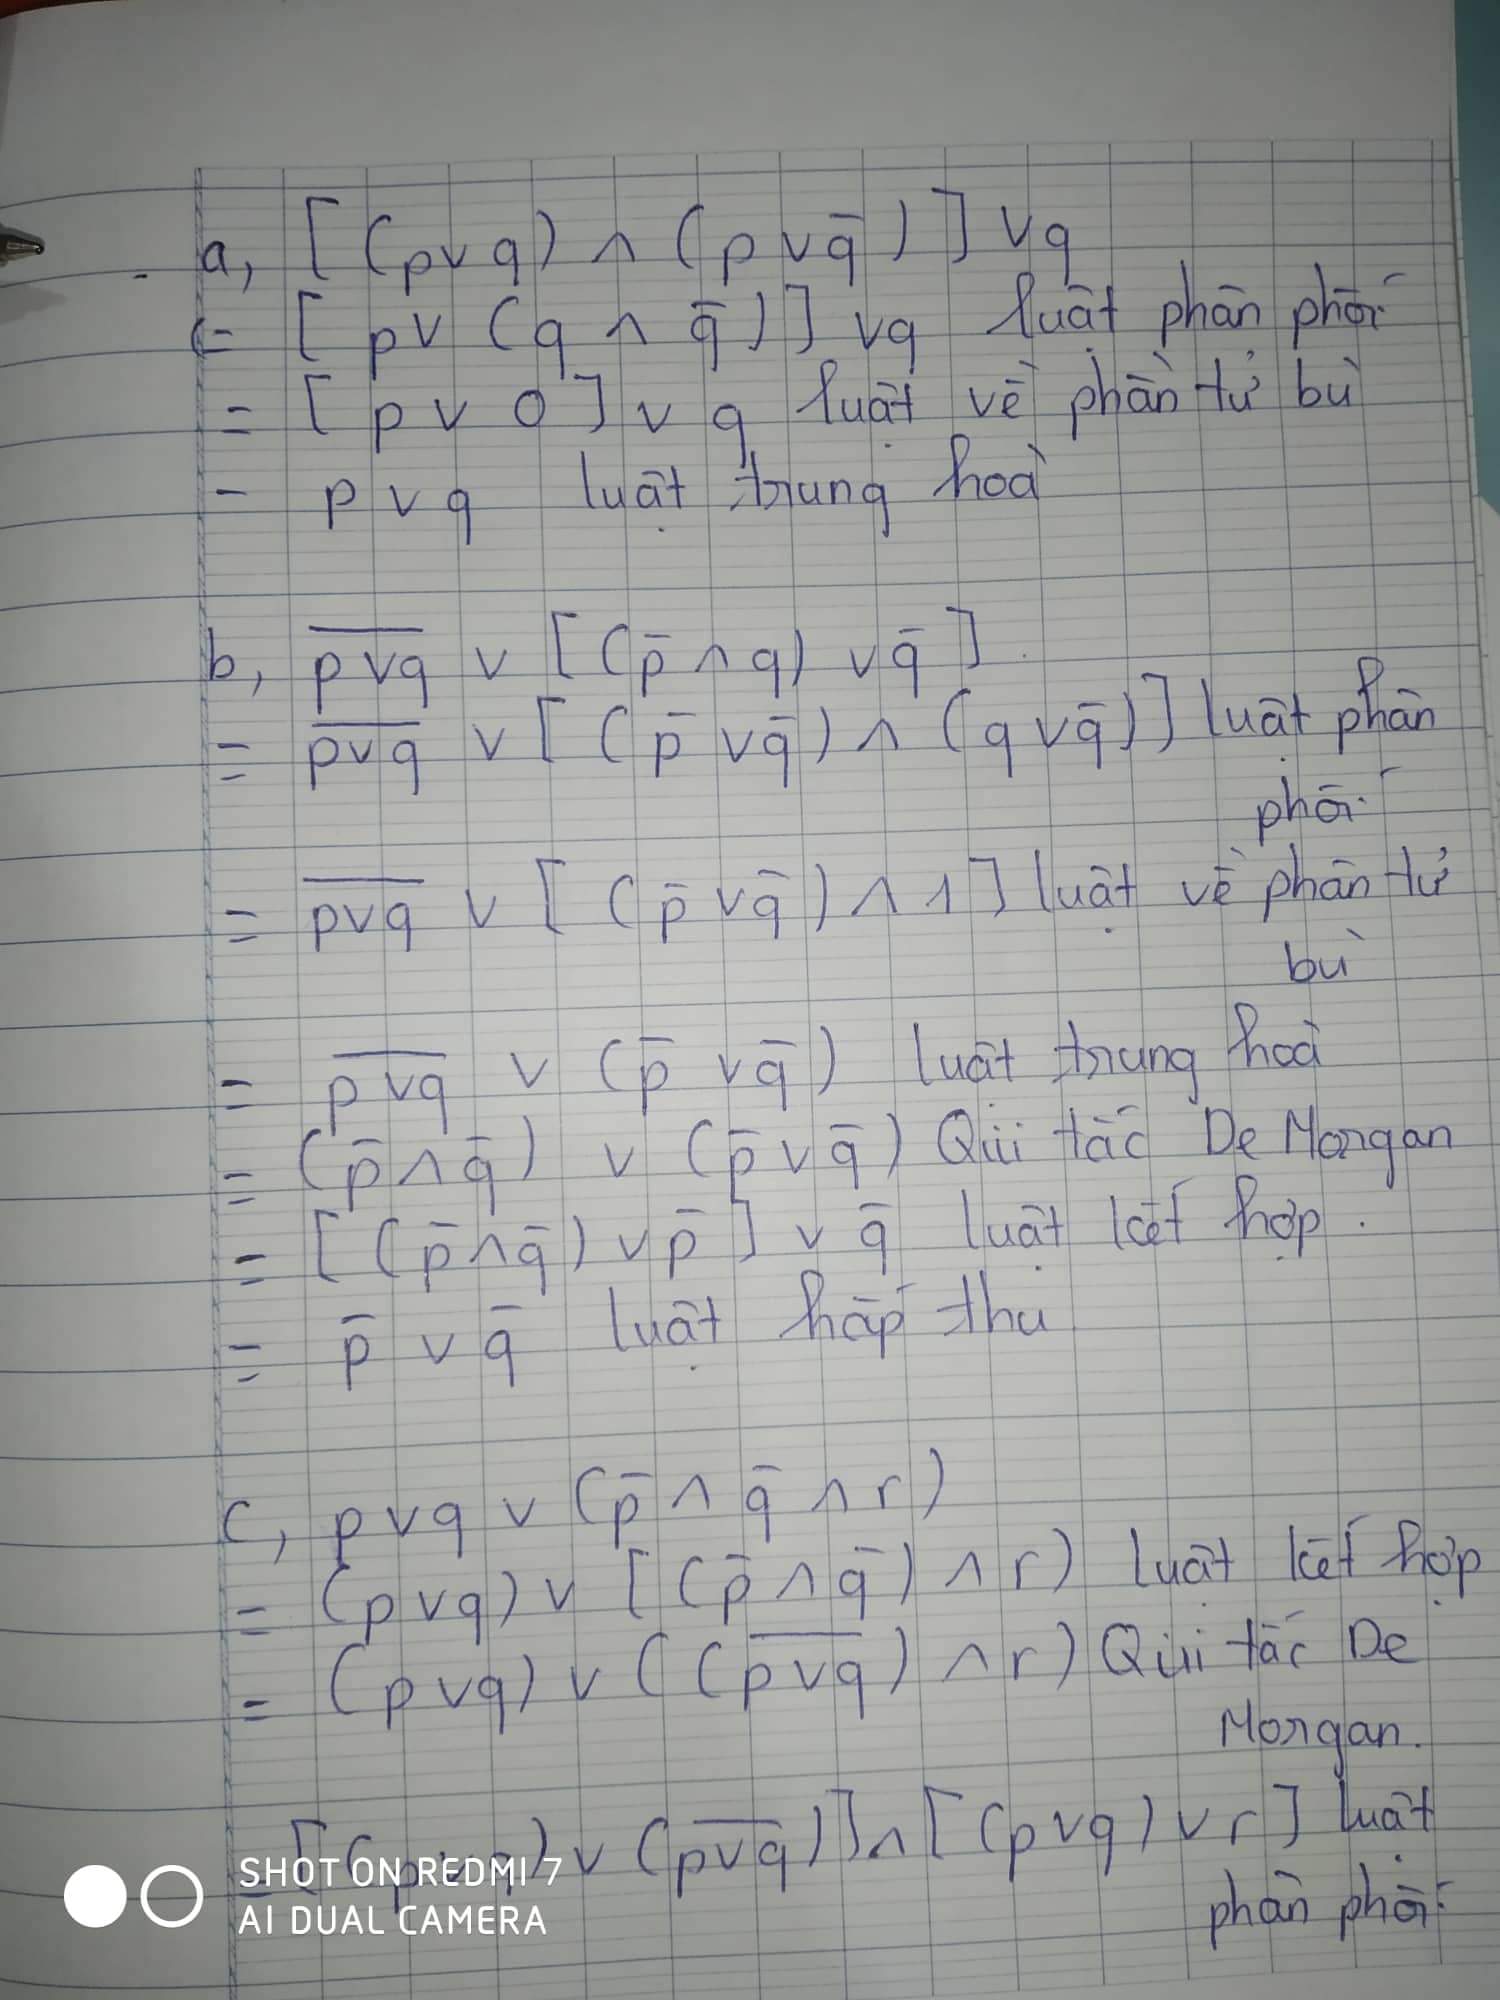 a, [(p∨q) ∧ (p∨q̄)] ∨q
= [p∨ (q ∧ q̄)] ∨q luật phân phối
= [p ∨ 0] ∨ q luật về phần tử bù
- p∨q luật trung hoà
b, \overline{p∨q} ∨ [(p̄∧q) ∨q̄]
= \overline{p∨q} ∨ [(p̄∨q̄) ∧ (q∨q̄)] luật phân
phối
= \overline{p∨q} ∨ [(p̄∨q̄) ∧ 1] luật về phần tử
bù
= \overline{p∨q} ∨ (p̄ ∨q̄) luật trung hoà
= (p̄∧q̄) ∨ (p̄∨q̄) Qui tắc De Morgan
= [(p̄∧q̄) ∨p̄] ∨ q̄ luật kết hợp.
= p̄ ∨ q̄ luật hấp thu
c, p∨q ∨ (p̄ ∧ q̄ ∧r)
= (p∨q) ∨ [(p̄∧q̄) ∧r) luật kết hợp
= (p∨q) ∨ ((\overline{p∨q}) ∧r) Qui tắc De
Morgan.
= [(p∨q) ∨ (\overline{p∨q})]∧[(p∨q)∨r] luật
phân phối
SHOT ON REDMI 7
AI DUAL CAMERA